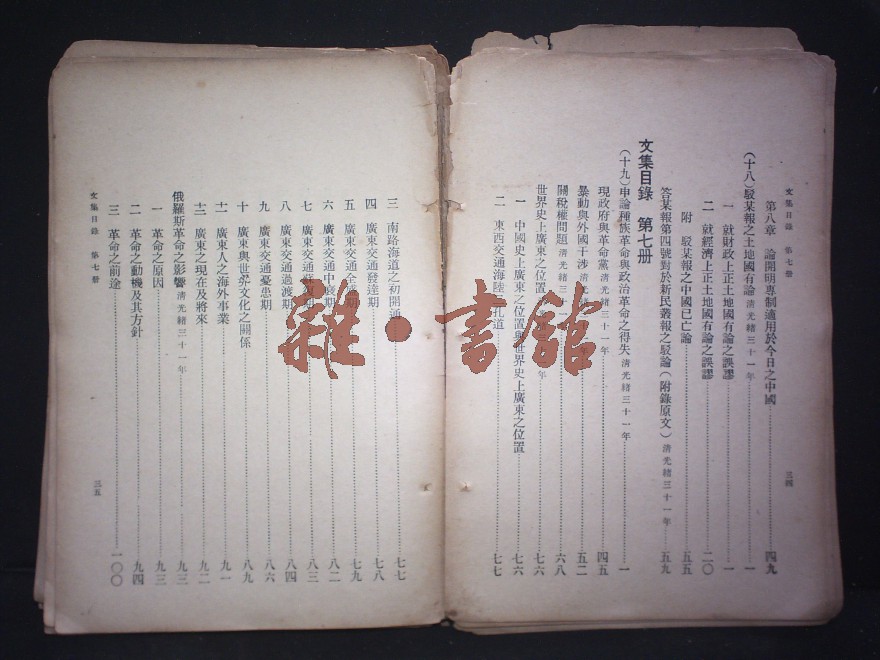 文集目錄 第七册 三四
第八章 論開明專制適用於今日之中國 四九
(十八)駁某報之土地國有論 清光緒三十一年 一
一 就財政上正土地國有論之誤謬 一
二 就經濟上正土地國有論之誤謬 二〇
附 駁某報之中國已亡論 五五
答某報第四號對於新民叢報之駁論(附錄原文) 清光緒三十一年 五九
文集目錄 第七册
(十九)申論種族革命與政治革命之得失 清光緒三十一年 一
現政府與革命黨 清光緒三十一年 四五
暴動與外國干涉 清光緒 年 五二
關稅權問題 清光緒三十一 六八
世界史上廣東之位置 年 七六
一 中國史上廣東之位置與世界史上廣東之位置 七六
二 東西交通海陸 孔道 七七
三 南路海道之初開通 七七
四 廣東交通發達期 七八
五 廣東交通全 期 七九
六 廣東交通中衰期 八二
七 廣東交通 期 八三
八 廣東交通過渡期 八四
九 廣東交通憂患期 八六
十 廣東與世界文化之關係 八九
十一 廣東人之海外事業 九一
十二 廣東之現在及將來 九二
俄羅斯革命之影響 清光緒三十一年 九三
一 革命之原因 九三
二 革命之動機及其方針 九四
三 革命之前途 一〇〇
文集目錄 第七册 三五
雜·書館